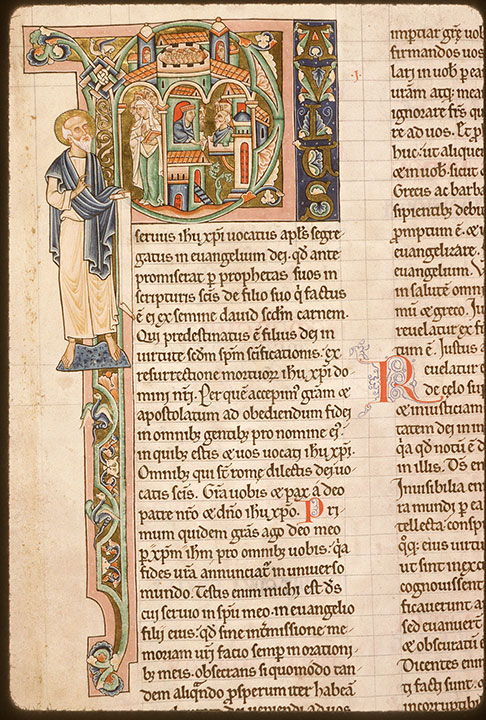 PAVLUS
seruus ihu xpi uocatus apls segre
gatus in euangelium dei. qđ ante
promiserat p prophetas suos in
scripturis scis de filio suo q̇ factus
ē ei ex semine dauid scdm carnem.
Qui predestinatus ē filius dei in
uirtute scdm spm scificationis. ex
resurrectione mortuoꝝ ihu xpi do
mini nri. Per quē accepim⁹ grām &
apostolatum ad obediendum fidei
in omnib; gentib; pro nomine ei⁹.
in quib; estis & uos uocati ihu xpi.
Omnib; qui st rome dilectis dei uo
catis scis. Gr̄a uobis & pax á deo
patre nro & dn̄o ihu xpo. Pri
mum quidem gr̄as ago deo meo
ꝑ xpm ihm pro omnib; uobis. q̇a
fides ur̄a annunciat̃ in uniuerso
mundo. Testis enim michi est d̄s
cui seruio in spu meo. in euangelio
filii eius. qđ sine int̄missione me-
moriam ur̄i facio semp in orationi
b; meis. obsecrans si quomódo tan
dem aliqn̄do ꝓsperum iter habeā
.I.
impciar gr̄e uob
firmandos uos
lari in uob ꝑ ea
ur̄am atq; mean
ignorare fr̄s qu
re ad uos. Et ꝓ
huc. ut aliquen
& in uob. sicut &
Grecis ac barba
sipientib; debit
promptum ē. & u
euangelizare.
euangelium. V
in salutē omni
mū & greco. Iu
reuelatur ex f
tum ē. Iustus a
Reuelatur e
de celo sup
& iniusticiam
tatem dei inu
q̇a qđ notū ē d
in illis. D̄s en
Inuisibilia en
ra mundi ꝑ ea
tellecta. conspi
q̇q̇; eius uirtu
ut sint inexc
cognouissent
ficauerunt a
sed euanuert
& obscuratū
Dicentes eni
ti facti sunt. &
incorruptib